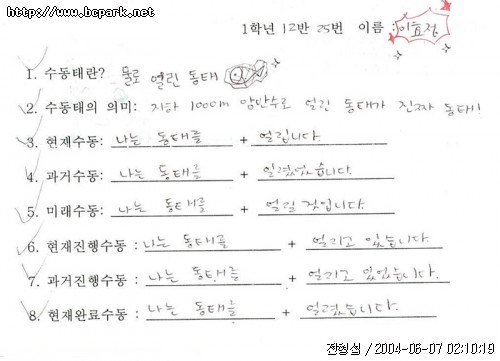 http://www.bcpark.net
1학년 12반 25번 이름 : 이효정
1. 수동태란? 물로 얼린 동태
2. 수동태의 의미: 지하 1000m 암반수로 얼린 동태가 진짜 동태!
3. 현재수동: 나는 동태를 + 얼립니다.
4. 과거수동: 나는 동태를 + 얼렸었습니다.
5. 미래수동: 나는 동태를 + 얼릴 것입니다.
6. 현재진행수동 : 나는 동태를 + 얼리고 있습니다.
7. 과거진행수동 : 나는 동태를 + 얼리고 있었습니다.
8. 현재완료수동 : 나는 동태를 + 얼렸습니다.
전형섭 / 2004-06-07 02:10:19